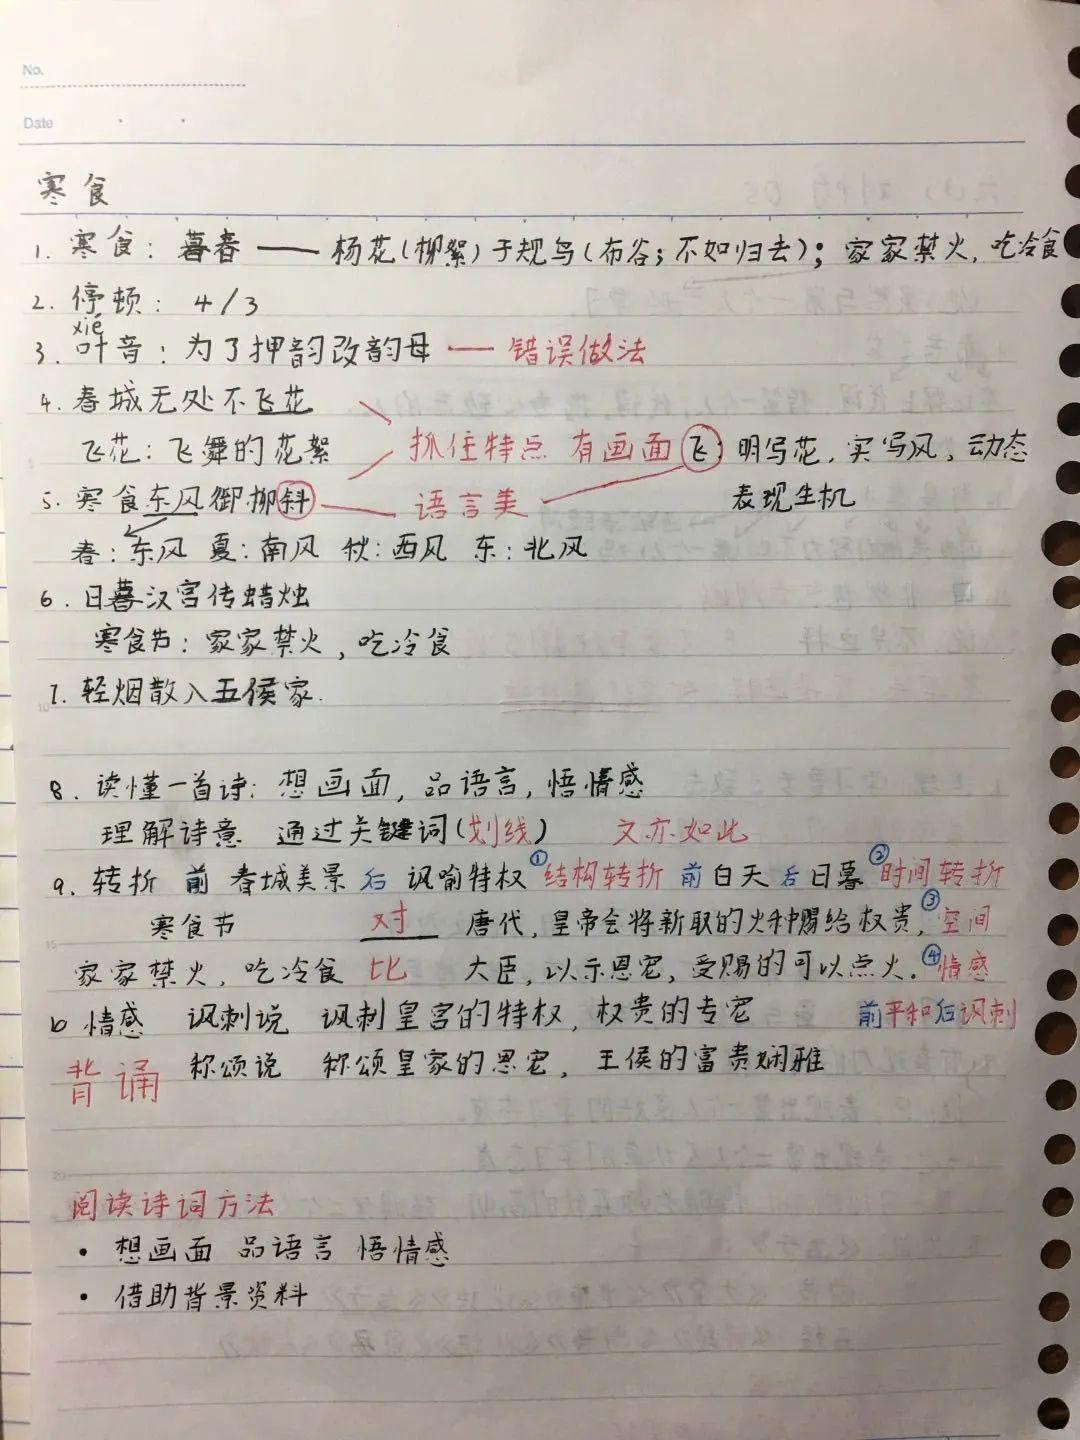 No.
Date
寒食
1. 寒食：暮春 —— 杨花(柳絮)于规鸟(布谷；不如归去)；家家禁火，吃冷食
2. 停顿：4/3
xié
3. 叶音：为了押韵改韵母 —— 错误做法
4. 春城无处不飞花
飞花：飞舞的花絮 抓住特点 有画面 飞：明写花，实写风，动态
5. 寒食东风御柳斜 —— 语言美 表现生机
春：东风 夏：南风 秋：西风 东：北风
6. 日暮汉宫传蜡烛
寒食节：家家禁火，吃冷食
7. 轻烟散入五侯家.
8. 读懂一首诗：想画面，品语言，悟情感
理解诗意 通过关键词(划线) 文亦如此
9. 转折 前 春城美景 后 讽喻特权 ①结构转折 前白天后日暮 ②时间转折
寒食节 对 唐代，皇帝会将新取的火种赐给权贵，③空间
家家禁火，吃冷食 比 大臣，以示恩宠，受赐的可以点火. ④情感
10 情感 讽刺说 讽刺皇宫的特权，权贵的专宠 前平和后讽刺
背诵 称颂说 称颂皇家的恩宠，王侯的富贵娴雅
阅读诗词方法
· 想画面 品语言 悟情感
· 借助背景资料